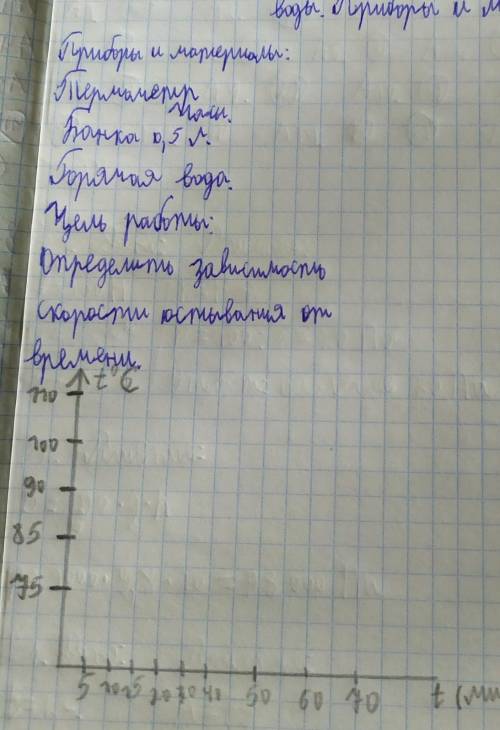 воды. Приборы и м
Приборы и материалы:
Термометр
Часы.
Банка 0,5 л.
Горячая вода.
Цель работы:
Определить зависимость
скорости остывания от
времени.
t°C
110
100
90
85
75
5 10 15 20 30 40 50 60 70 t (мин